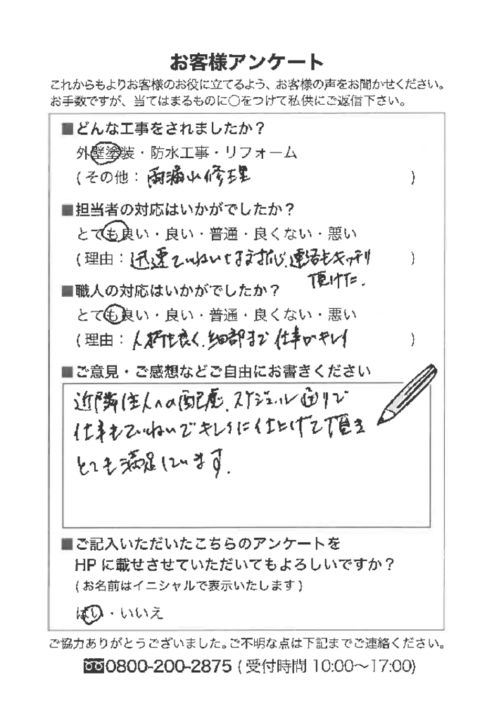 お客様アンケート
これからもよりお客様のお役に立てるよう、お客様の声をお聞かせください。
お手数ですが、当てはまるものに○をつけて私供にご返信下さい。
■どんな工事をされましたか？
外壁塗装・防水工事・リフォーム
(その他：雨漏れ修理 )
■担当者の対応はいかがでしたか？
とても良い・良い・普通・良くない・悪い
(理由：迅速でていねいな対応、連絡もキッチリ )
頂けた.
■職人の対応はいかがでしたか？
とても良い・良い・普通・良くない・悪い
(理由：人柄も良く、細部まで仕事がキレイ )
■ご意見・ご感想などご自由にお書きください
近隣住人への配慮、スケジュール通りで
仕事もていねいでキレイに仕上げて頂き
とても満足しています.
■ご記入いただいたこちらのアンケートを
HPに載せさせていただいてもよろしいですか？
(お名前はイニシャルで表示いたします)
はい・いいえ
ご協力ありがとうございました。ご不明な点は下記までご連絡ください。
0800-200-2875 (受付時間 10:00〜17:00)